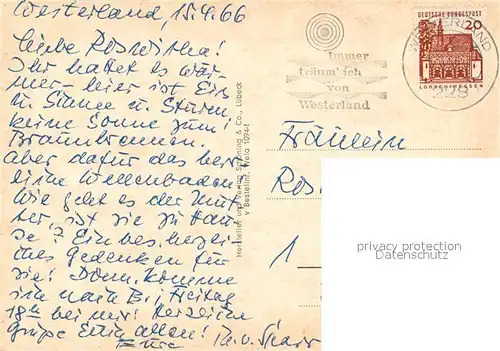 Westerland, 15.4.66
Liebe Roswitha!
Ihr hattet es wär-
mer - hier ist Eis
u. Sturm
keine Sonne zum
Braunbrennen.
Aber dafür das herr-
liche Wellenbaden.
Wie geht es der Mut-
ter, ist sie zu Hau-
se? Ein bes. herzli-
ches Gedenken für
sie! Donn. komme
ich nach B., Freitag
bei mir! Herzliche
Grüße Euch allen!
Eure
Immer
träum' ich
von
Westerland
DEUTSCHE BUNDESPOST
20
LORSCH/HESSEN
WESTERLAND
228
Hersteller und Verlag Schöning & Co., Lübeck
Bestellnr.
Fräulein
Ros
1
privacy protection
Datenschutz